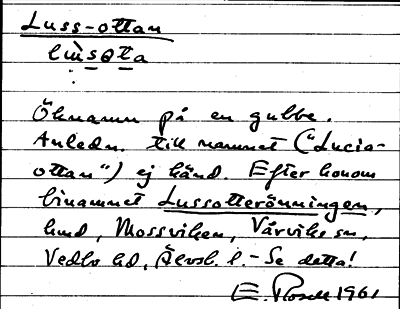 Luss-ottan
Öknamn på en gubbe.
Anledn. till namnet ("Lucia-
ottan") ej känd. Efter honom
binamnet Lussotterönningen,
hmd, Mossviken, Vårviks sn,
Vedbo hd, Älvsb. l. - Se detta!
E. Rosell 1961